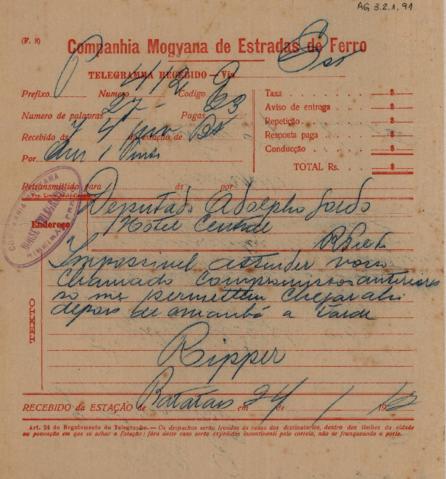 AG 3.2.1.91
(F. 8)
Companhia Mogyana de Estradas de Ferro
TELEGRAMMA RECEBIDO — Via
Prefixo P Numero 112 Codigo
Numero de palavras 27 Pagas 23
Recebido de
Por
Taxa $
Aviso de entrega $
Repetição $
Resposta paga $
Conducção $
TOTAL Rs. $
Retransmittido para ás por
Endereço
Deputado Adolpho Gordo
Hotel Central
R Preto
TEXTO
Impossivel attender vosso
chamado compromissos anteriores
so me permittem chegar ahi
depois de amanhã a tarde
Ripper
RECEBIDO DA ESTAÇÃO DE Batataes em 24 de 1 19
Art. 24 do Regulamento do Telegrapho. — Os despachos serão levados ás casas dos destinatarios, dentro dos limites da cidade
ou povoação em que se achar a Estação; fóra deste caso serão expedidos incontinenti pelo correio, não se franqueando o porte.